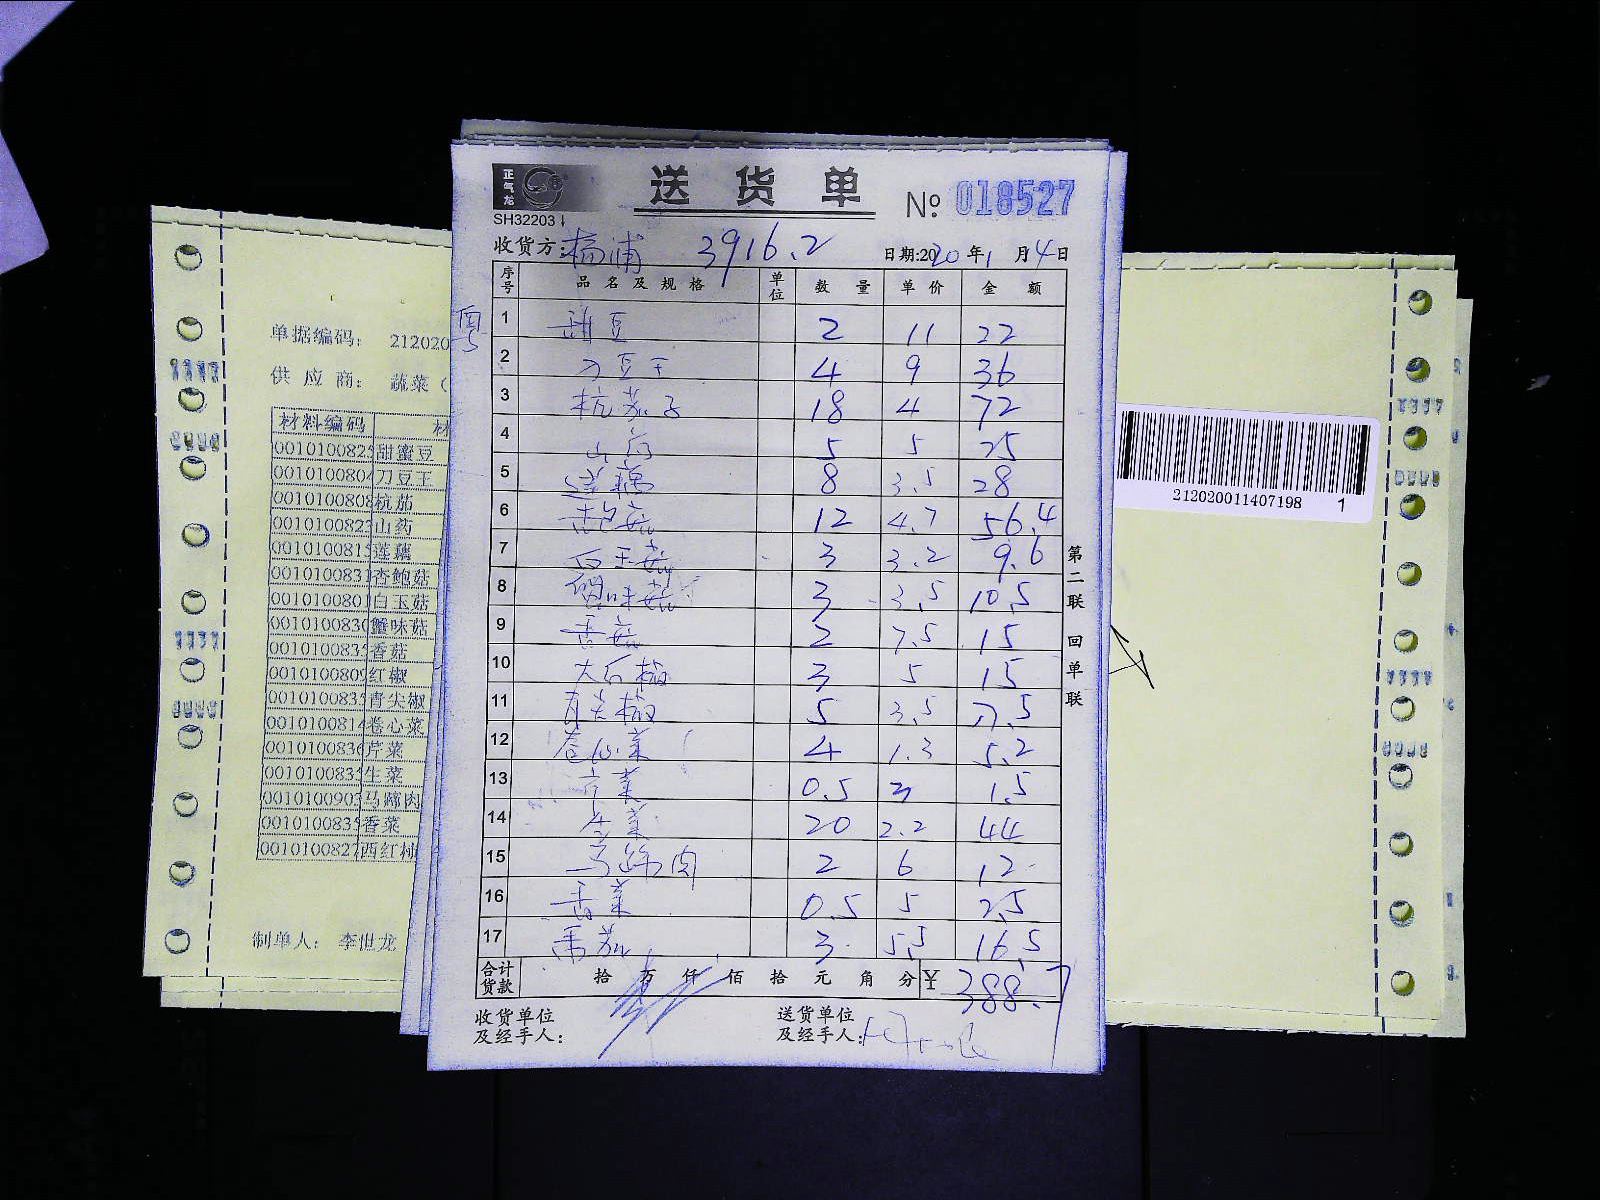 正气龙
送货单
№ 018527
SH32203
收货方: 杨浦 3916.2 日期:2020年1月4日
序号 品名及规格 单位 数量 单价 金额
1 甜豆 2 11 22
2 刀豆王 4 9 36
3 杭茄子 18 4 72
4 山药 5 5 25
5 莲藕 8 3.5 28
6 杏鲍菇 12 4.7 56.4
7 白玉菇 3 3.2 9.6
8 蟹味菇 3 3.5 10.5
9 香菇 2 7.5 15
10 大红椒 3 5 15
11 青尖椒 5 3.5 17.5
12 卷心菜 4 1.3 5.2
13 芹菜 0.5 3 1.5
14 生菜 20 2.2 44
15 马蹄肉 2 6 12
16 香菜 0.5 5 2.5
17 番茄 3 5.5 16.5
合计货款 拾 万 仟 佰 拾 元 角 分 ¥ 388.7
收货单位及经手人:
送货单位及经手人:
第二联 回单联
单据编码: 212020
供应商: 蔬菜(
材料编码 材
0010100825 甜蜜豆
0010100804 刀豆王
0010100808 杭茄
0010100823 山药
0010100815 莲藕
0010100831 杏鲍菇
0010100801 白玉菇
0010100830 蟹味菇
0010100833 香菇
0010100809 红椒
0010100835 青尖椒
0010100814 卷心菜
0010100836 芹菜
0010100833 生菜
0010100903 马蹄肉
0010100835 香菜
0010100827 西红柿
制单人: 李世龙
212020011407198 1